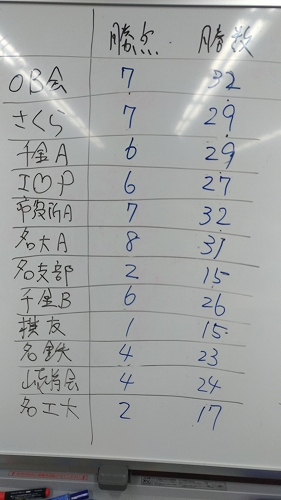 勝点 勝数
OB会 7 32
さくら 7 29
千金A 6 29
I♡P 6 27
市役所A 7 32
名大A 8 31
名支部 2 15
千金B 6 26
棋友 1 15
名鉄 4 23
会 4 24
名工大 2 17